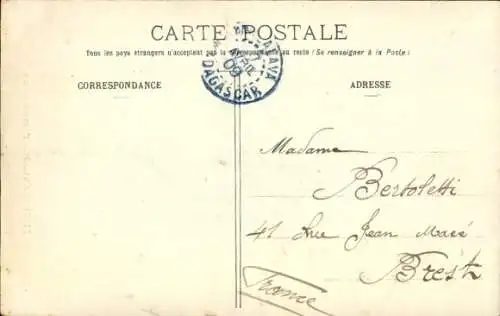 CARTE POSTALE
Tous les pays étrangers n'acceptent pas la correspondance au recto (Se renseigner à la Poste)
CORRESPONDANCE
ADRESSE
09
DAGASCAR
Madame
Bertoletti
41 Rue Jean Macé
Brest
France